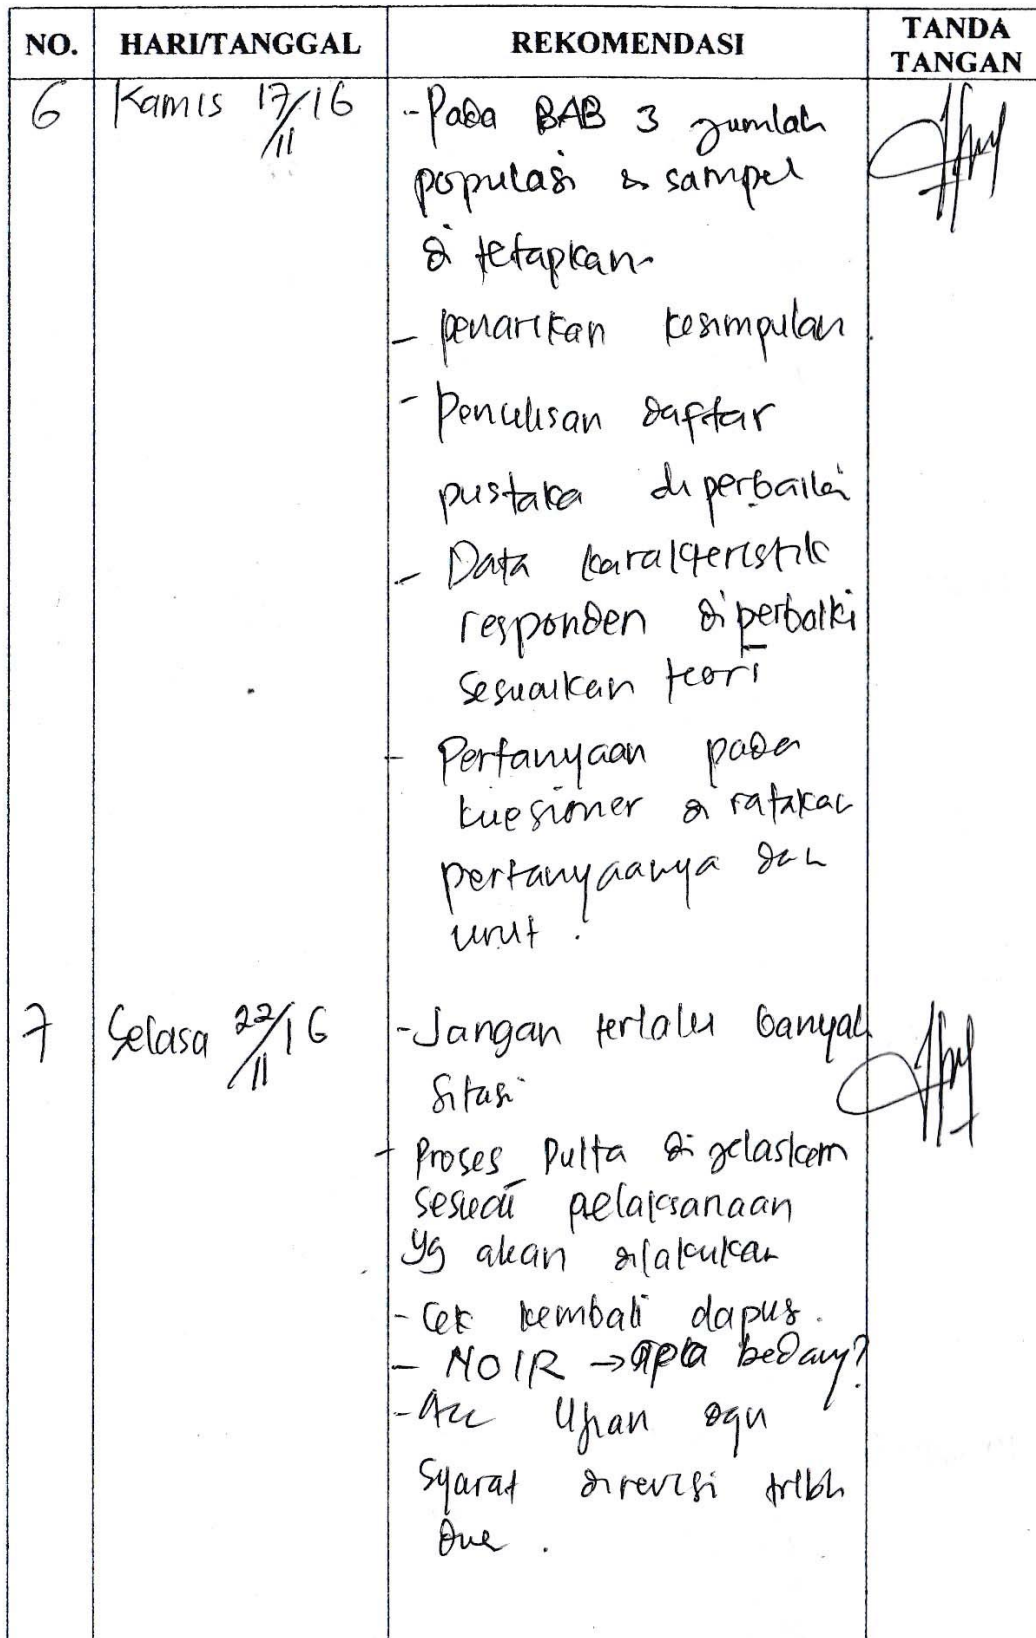 NO. HARI/TANGGAL REKOMENDASI TANDA TANGAN
6 Kamis 17/11 16 - Pada BAB 3 jumlah
populasi & sampel
di tetapkan
- penarikan kesimpulan
- Penulisan daftar
pustaka diperbaiki
- Data karakteristik
responden diperbaiki
sesuaikan teori
- Pertanyaan pada
kuesioner di ratakan
pertanyaanya dan
urut.
7 Selasa 22/11 16 - Jangan terlalu banyak
sitasi
- Proses Pulta di jelaskan
sesuai pelaksanaan
yg akan dilakukan
- Cek kembali dapus.
- NOIR → apa bedany?
- Acc Ujian dgn
syarat direvisi trlbh